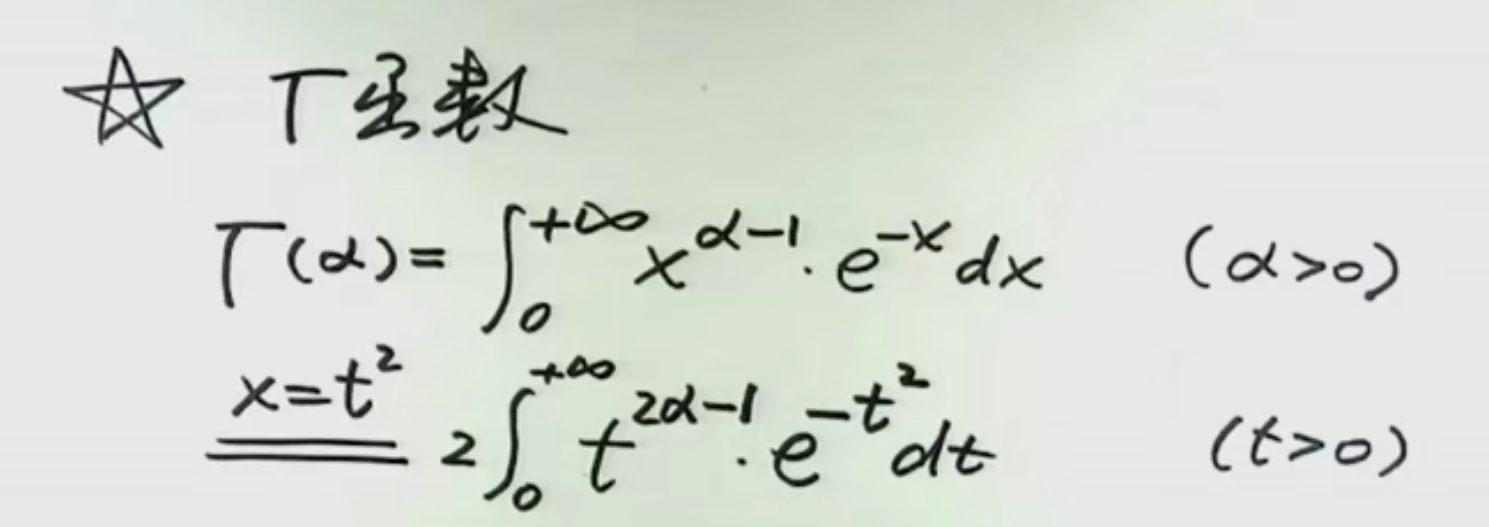 ☆ Γ函数
Γ(α)=∫₀^{+∞} x^{α-1}·e^{-x}dx (α>0)
x=t² 2∫₀^{+∞} t^{2α-1}·e^{-t²}dt (t>0)